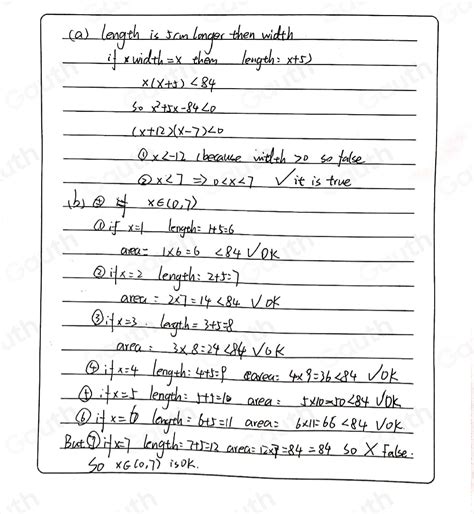 (a) length is 5cm longer then width
if x width = x them length: x+5)
x(x+5) < 84
So x²+5x-84<0
(x+12)(x-7)<0
① x<-12 (because width >0 so false
② x<7 => 0<x<7 √ it is true
(b) ② if x∈(0,7)
① if x=1 length= 1+5=6
area= 1x6=6 <84 √ OK
② if x=2 length: 2+5=7
area= 2x7=14<84 √ OK
③ if x=3. length= 3+5=8
area= 3x8=24<84 √ OK
④ if x=4 length: 4+5=9 area= 4x9=36<84 √ OK
if x=5 length: 5+5=10 area= 5x10=50<84 √ OK
⑥ if x=6 length= 6+5=11 area= 6x11=66<84 √ OK.
But ⑦ if x=7 length= 7+5=12 area= 12x7=84=84 so X false.
So x∈(0,7) is OK.
Gauth